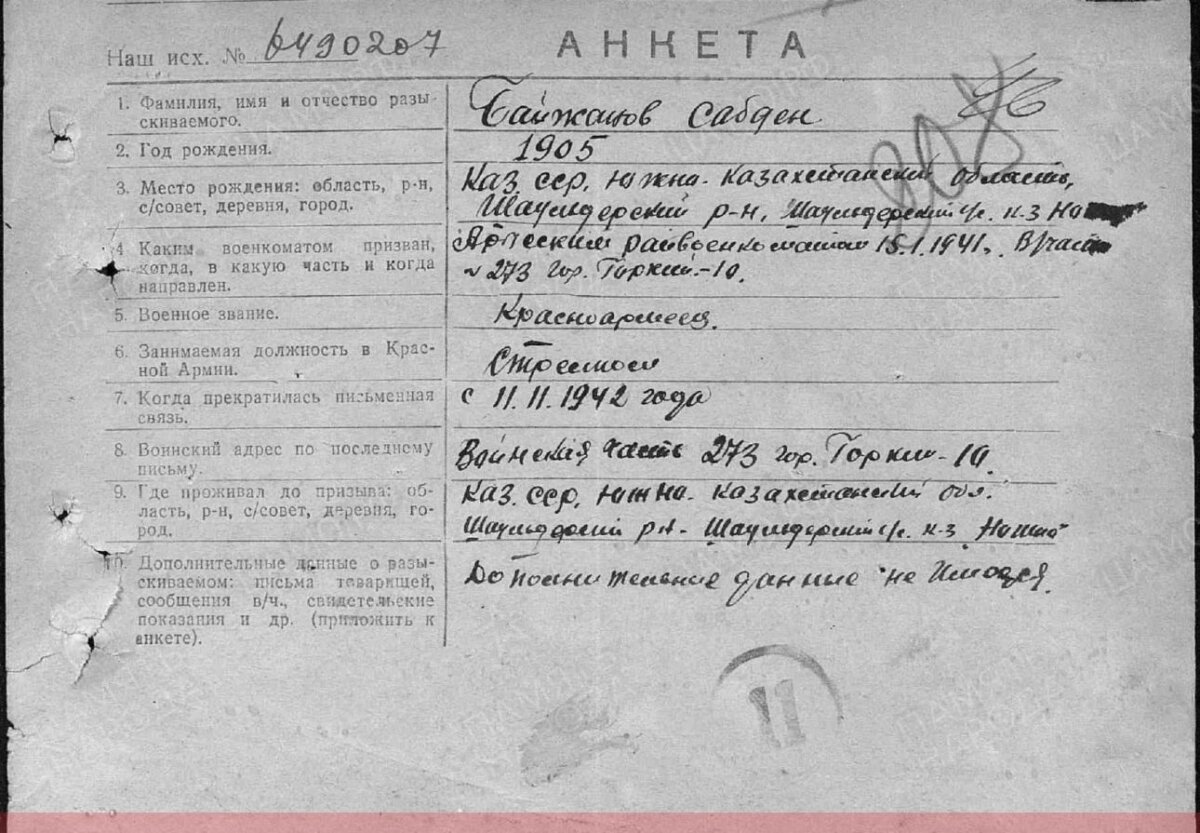 Наш исх. № 6490207
АНКЕТА
1. Фамилия, имя и отчество разы-
скиваемого.
Байжанов Сабден
2. Год рождения.
1905
3. Место рождения: область, р-н,
с/совет, деревня, город.
Каз. сср. Южно-Казахстанский область,
Шаульдерский р-н, Шаульдерский с/с. к-з
4. Каким военкоматом призван,
когда, в какую часть и когда
направлен.
Арысским райвоенкоматом 15.1.1941г. В/части
№ 273 гор. Горкий-10.
5. Военное звание.
Красноармеец.
6. Занимаемая должность в Крас-
ной Армии.
Стрелком
7. Когда прекратилась письменная
связь.
с 11.11.1942 года
8. Воинский адрес по последнему
письму.
Воинская часть 273 гор. Горкий-10.
9. Где проживал до призыва: об-
ласть, р-н, с/совет, деревня, го-
род.
Каз. сср. Южно-Казахстанский обл.
Шаульдерский р-н. Шаульдерский с/с. к-з
10. Дополнительные данные о разы-
скиваемом: письма товарищей,
сообщения в/ч., свидетельские
показания и др. (приложить к
анкете).
Дополнительные данные не имеется
11